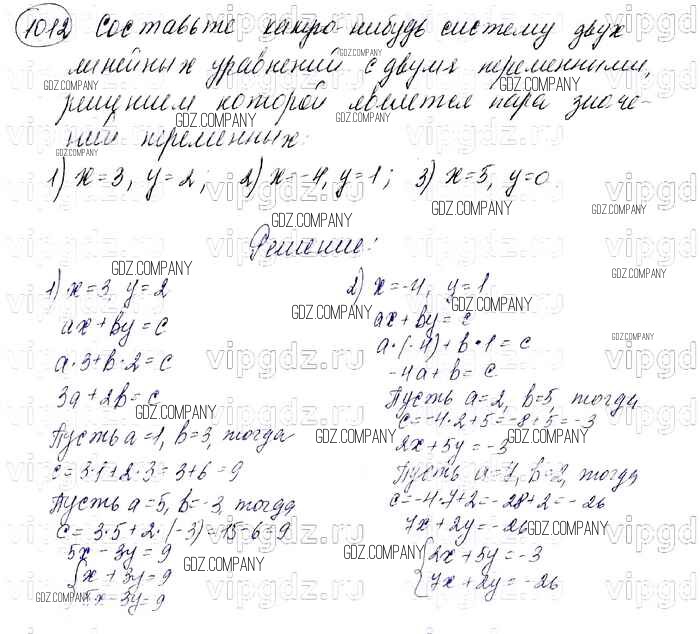 1012 Составьте какую-нибудь систему двух
линейных уравнений с двумя переменными,
решением которой является пара значе-
ний переменных:
1) x=3, y=2; 2) x=-4, y=1; 3) x=5, y=0.
Решение:
1) x=3, y=2
ax+by=c
a·3+b·2=c
3a+2b=c
Пусть a=1, b=3, тогда
c=3·1+2·3=3+6=9
Пусть a=5, b=-3, тогда
c=3·5+2·(-3)=15-6=9
5x-3y=9
{x+3y=9
5x-3y=9
2) x=-4, y=1
ax+by=c
a·(-4)+b·1=c
-4a+b=c
Пусть a=2, b=5, тогда
c=-4·2+5=-8+5=-3
2x+5y=-3
Пусть a=7, b=2, тогда
c=-4·7+2=-28+2=-26
7x+2y=-26
{2x+5y=-3
7x+2y=-26
GDZ.COMPANY
vipgdz.ru